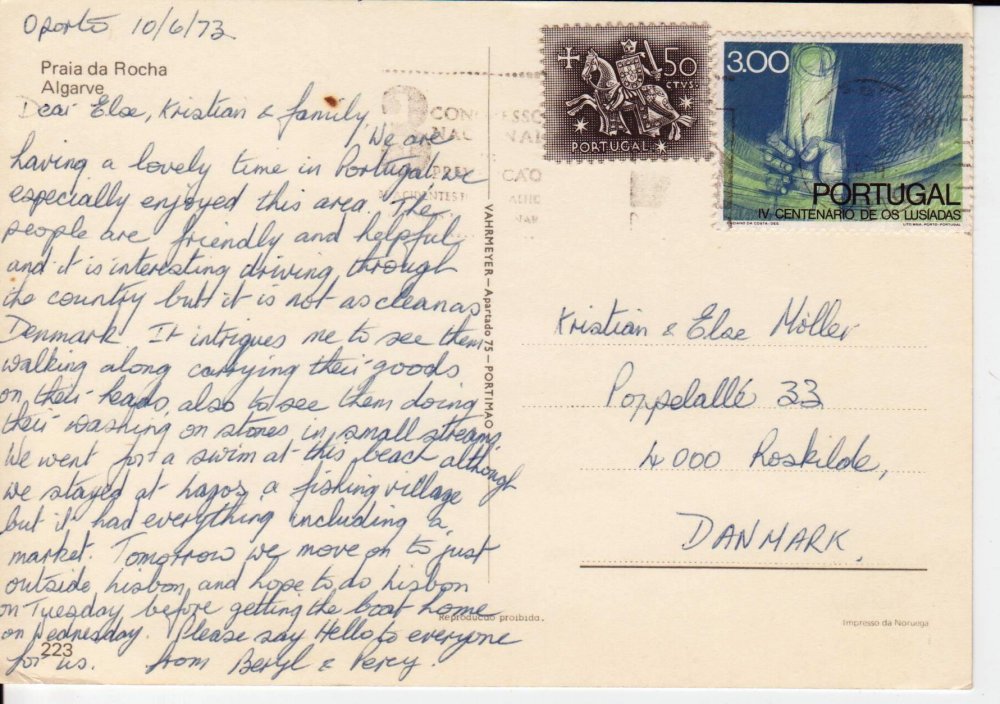 Oporto 10/6/73
Praia da Rocha
Algarve
Dear Else, Kristian & family,
We are
having a lovely time in Portugal, we
especially enjoyed this area. The
people are friendly and helpful
and it is interesting driving through
the country but it is not as clean as
Denmark. It intrigues me to see them
walking along carrying their goods
on their heads, also to see them doing
their washing on stones in small streams.
We went for a swim at this beach although
we stayed at Lagos, a fishing village
but it had everything including a
market. Tomorrow we move on to just
outside Lisbon, and hope to do Lisbon
on Tuesday before getting the boat home
on Wednesday. Please say Hello to everyone
for us. from Beryl & Percy.
223
VAHRMEYER — Apartado 75 — PORTIMAO
Reproducao proibida.
Impresso da Noruega
50
CTVS
PORTUGAL
3.00
PORTUGAL
IV CENTENÁRIO DE OS LUSÍADAS
LITO MAIA · PORTO · PORTUGAL
Kristian & Else Möller
Poppelallé 33
4000 Roskilde,
DANMARK.